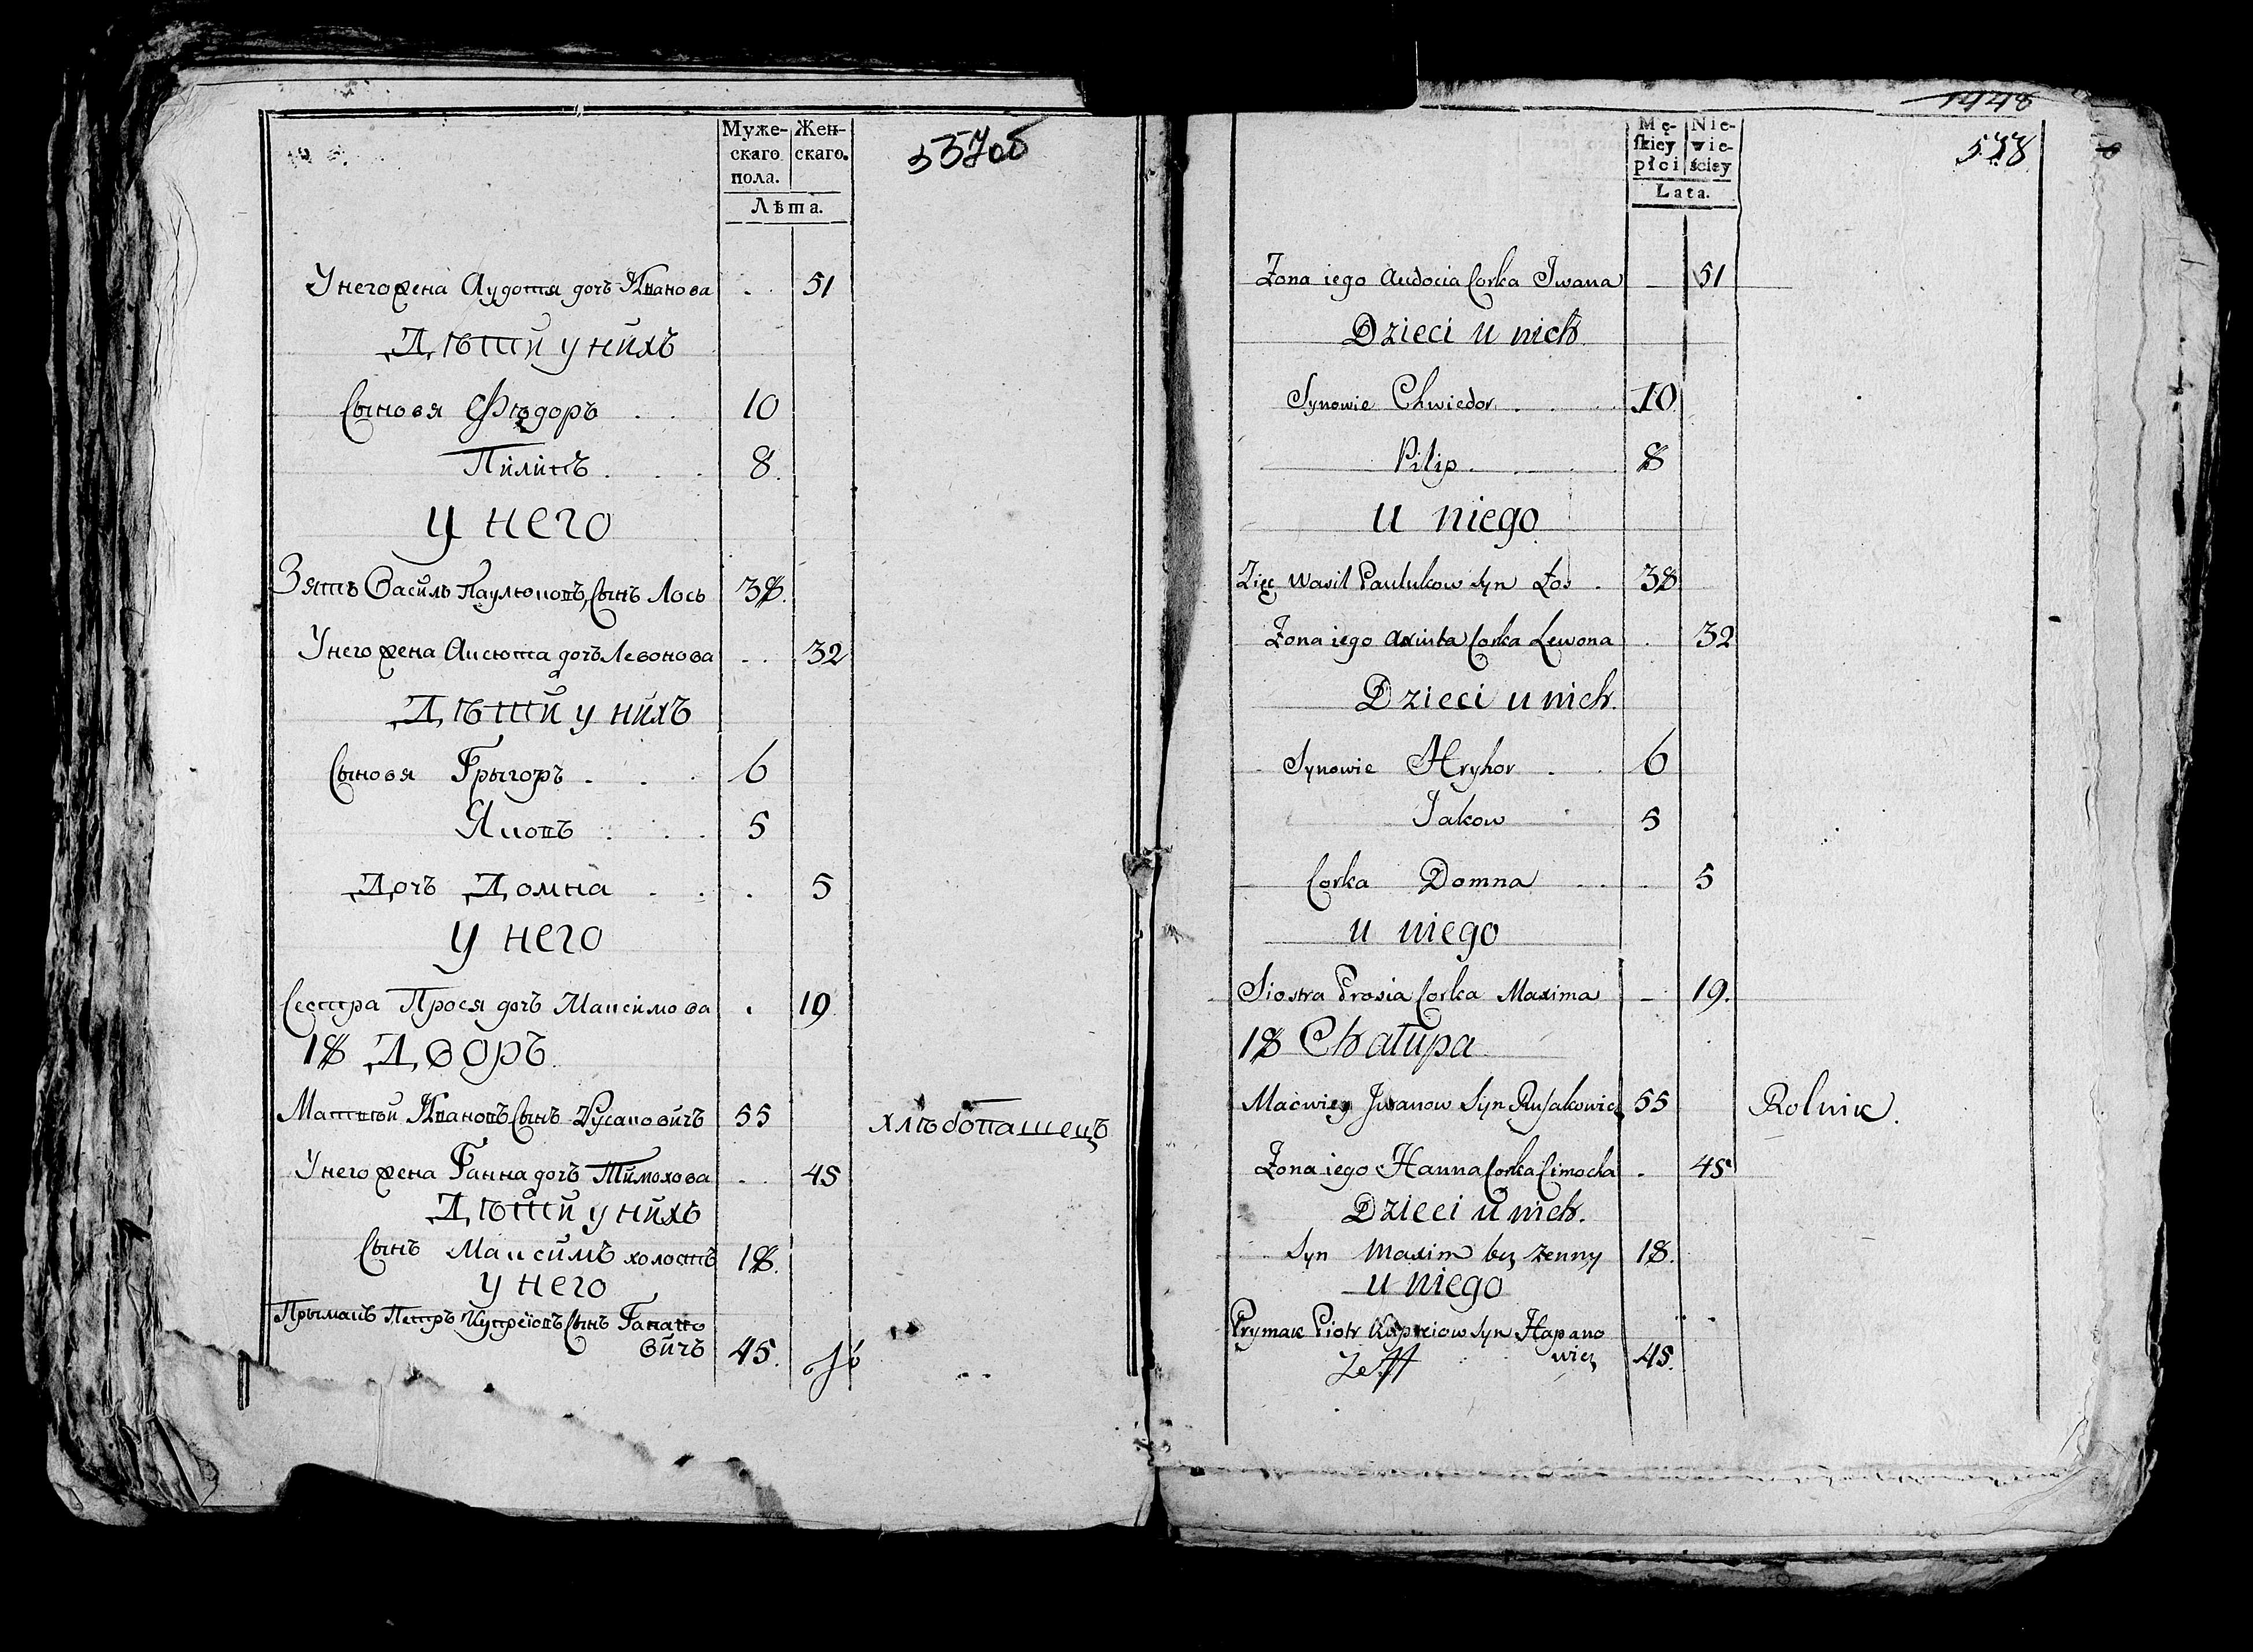 Муже-
скаго
пола.
Жен-
скаго.
Лѣта.
537об
У него жена Аудотя дочъ Иванова . . 51
Дѣти у нихъ
Сыновя Фѣдоръ . . 10
Пилипъ . . . 8.
У него
Зять Василь Паулюковъ Сынъ Лось 38.
У него жена Аксюта дочъ Левонова . . 32
Дѣти у нихъ
Сыновя Грыгоръ . . . 6
Яковъ . . . 5
Дочъ Домна . . . 5
У него
Сестра Прося дочъ Максимова . 19
18 Дворъ
Матвѣй Ивановъ Сынъ Русаковичъ 55 хлѣбопашецъ
У него жена Ганна дочъ Тимохова . . 45
Дѣти у нихъ
Сынъ Максимъ холостъ 18.
У него
Прымакъ Петръ Купреiовъ Сынъ Гапано
вичъ 45.
1448
538
Mę-
skiey
płci
Nie-
wie-
ściey
Lata.
Zona iego Audocia Corka Jwana — 51
Dzieci u nich
Synowie Chwiedor . . . 10
Pilip . . . 8
u niego
Zięc Wasil Paulukow syn Łos . 38
Zona iego Axiuta Corka Lewona . 32
Dzieci u nich.
Synowie Hryhor . . 6
Jakow 5
Corka Domna . . . 5
u niego
Siostra Prosia Corka Maxima — 19.
18 Chałupa
Macwiey Jwanow Syn Rusakowicz 55 Rolnik.
Zona iego Hanna Corka Cimocha . 45
Dzieci u nich.
Syn Maxim bez zenny 18.
u niego
Prymak Piotr Kupreiow syn Hapano
wicz 45.